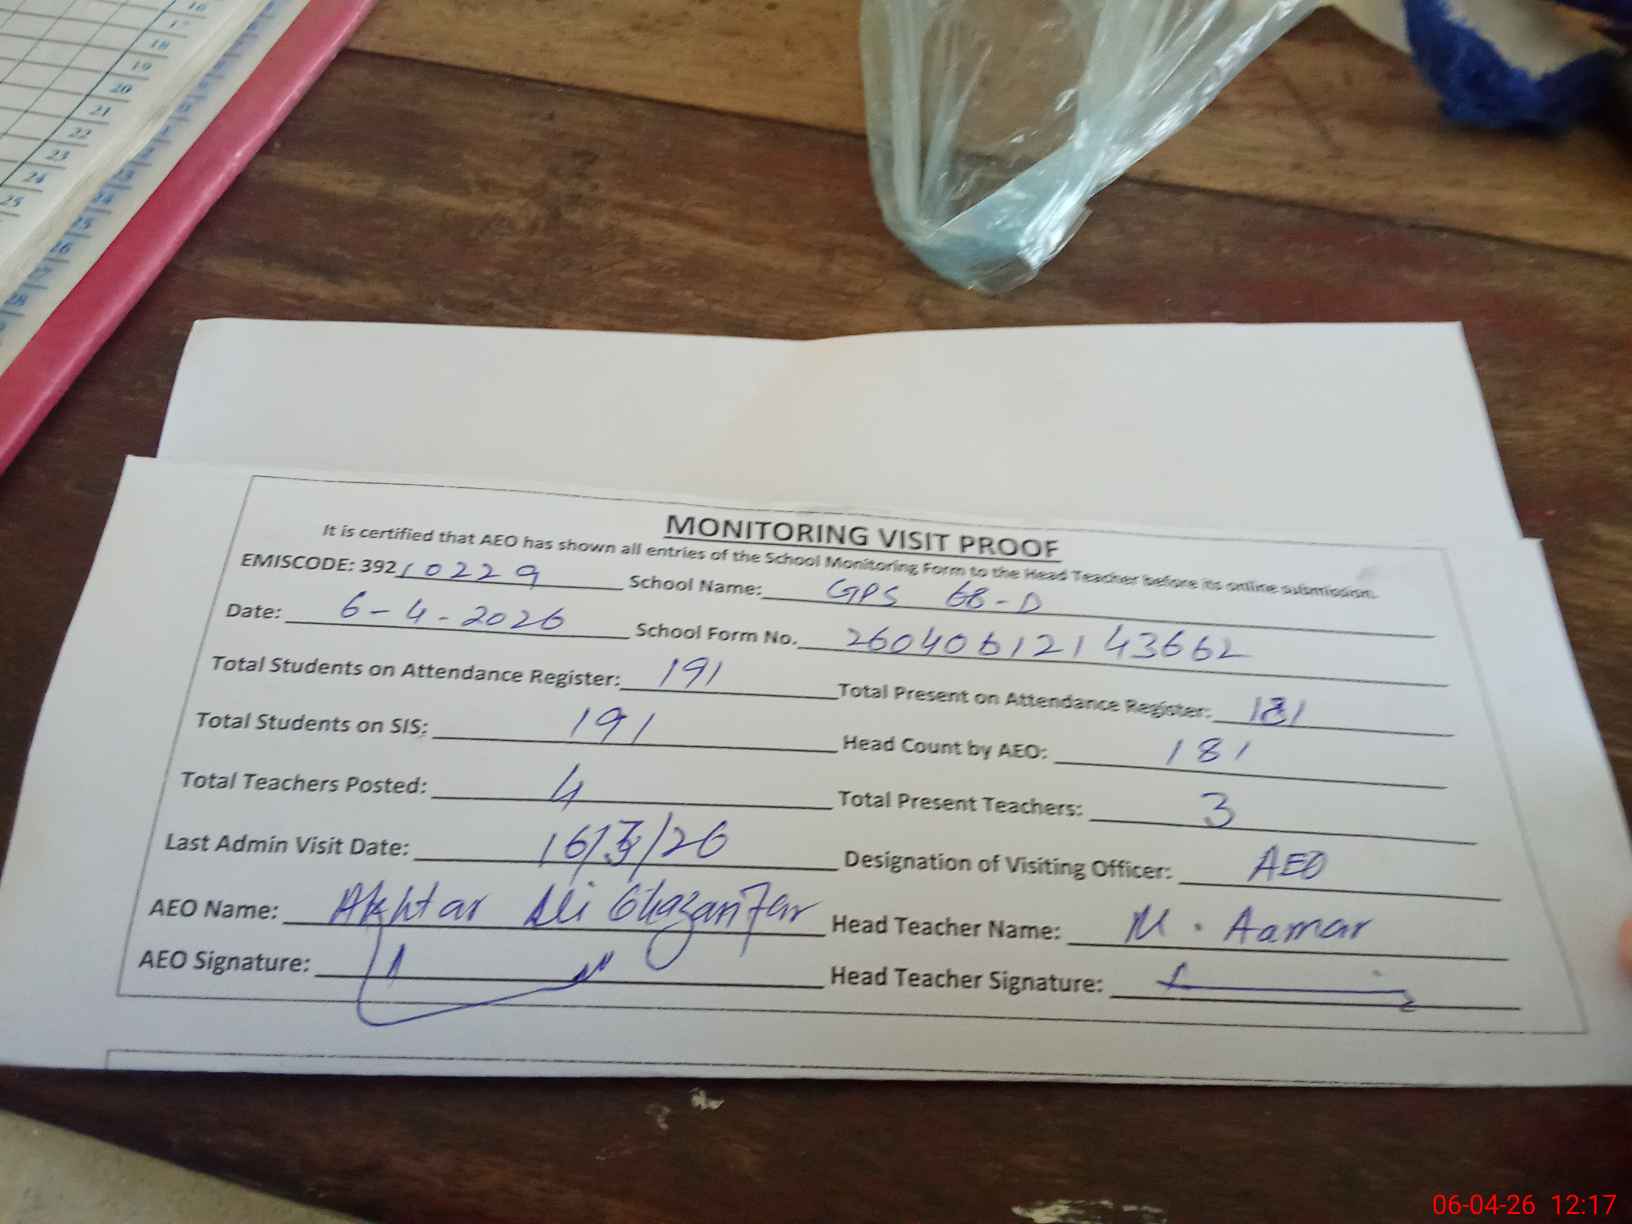 16
17
18
19
20
21
22
23
24
25
MONITORING VISIT PROOF
It is certified that AEO has shown all entries of the School Monitoring Form to the Head Teacher before its online submission.
EMISCODE: 39210229 School Name: GPS 68-D
Date: 6-4-2026 School Form No. 26040612143662
Total Students on Attendance Register: 191 Total Present on Attendance Register: 181
Total Students on SIS: 191 Head Count by AEO: 181
Total Teachers Posted: 4 Total Present Teachers: 3
Last Admin Visit Date: 16/3/26 Designation of Visiting Officer: AEO
AEO Name: Akhtar Ali Ghazanfar Head Teacher Name: M. Aamar
AEO Signature: Head Teacher Signature:
06-04-26 12:17